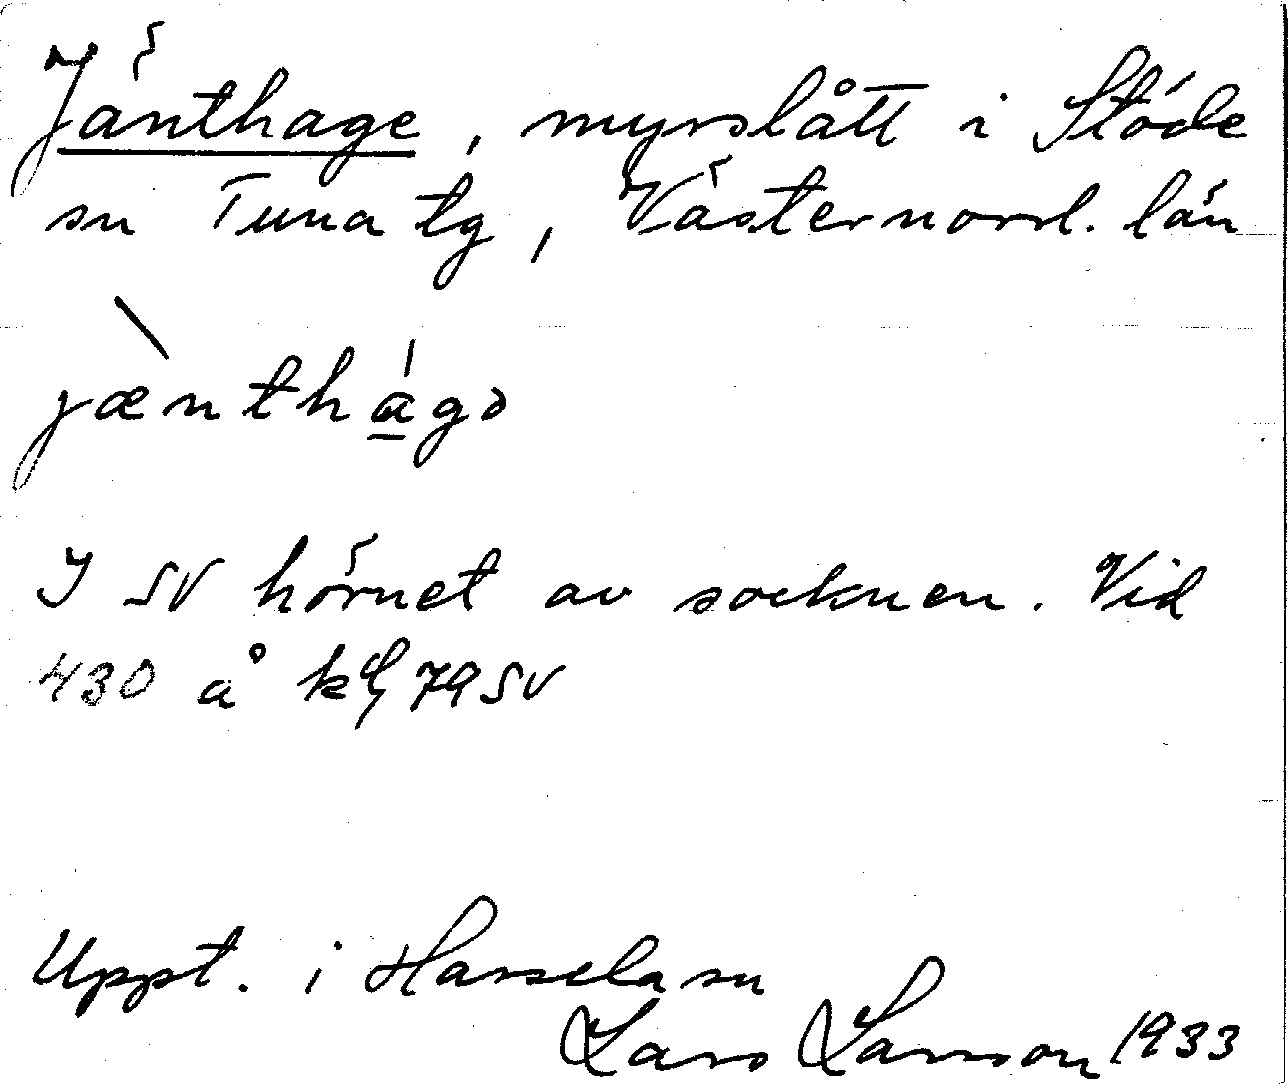 Jänthage, myrslått i Stöde
sn Tuna tg, Västernorrl. län
jænthagə
I SV hörnet av socknen. Vid
430 å kbl 79 SV
Uppt. i Hassela sn
Lars Larsson 1933